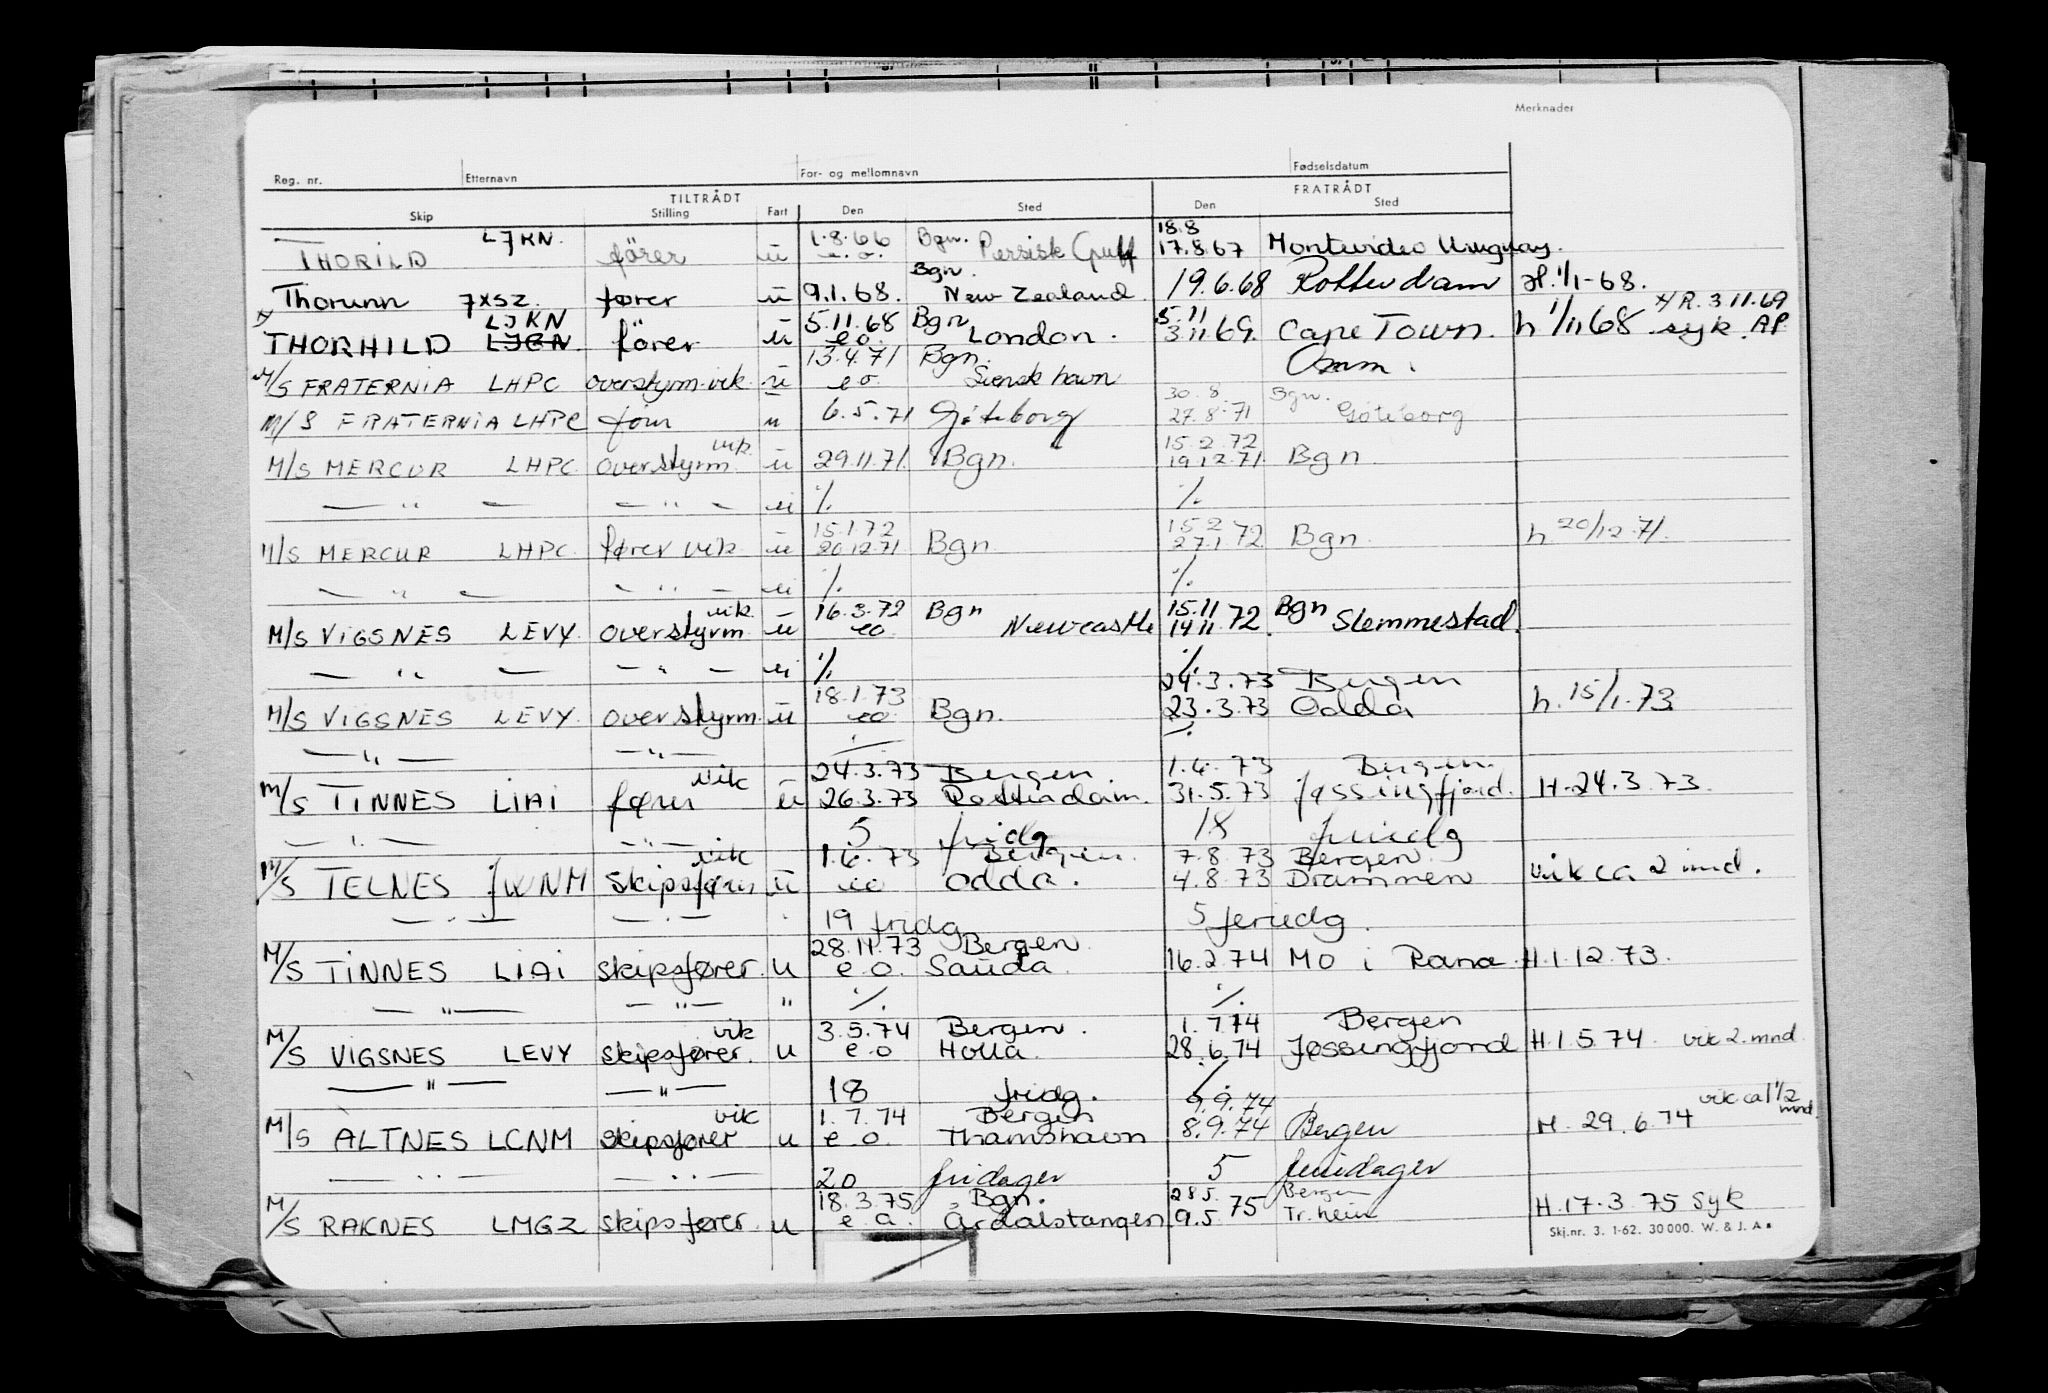 Merknader
Reg. nr. Etternavn For- og mellomnavn Fødselsdatum
TILTRÅDT FRATRÅDT
Skip Stilling Fart Den Sted Den Sted
LJKN. 1.8.66 Bgn. Persisk Gulf 18.8
THORILD fører u e.o. 17.8.67 Montevideo Uruguay.
Bgn.
Thorunn 7XSZ fører u 9.1.68. New Zealand 19.6.68 Rotterdam H. 1/1-68.
LJKN 5.11.68 Bgn 5.11 X R. 3.11.69
THORHILD LJGN fører u e.o. London. 3.11.69. Cape Town. h 1/11 68 syk. AP
13.4.71 Bgn. Omm.
M/S FRATERNIA LHPC overstyrm. vik. u e.o. Svensk havn
30.8 Bgn.
M/S FRATERNIA LHPC u 6.5.71 Göteborg 27.8.71 Göteborg
vik. 15.2.72
M/S MERCUR LHPC overstyrm u 29.11.71 Bgn. 19.12.71 Bgn
— " — — " — u ./. ./.
15.1.72 15.2
M/S MERCUR LHPC. fører vik u 20.12.71 Bgn. 27.1.72 Bgn. h 20/12.71.
— " — — " — u ./. ./.
vik 16.3.72 Bgn 15.11 Bgn
M/S VIGSNES LEVY overstyrm u eo Newcastle 14.11.72. Slemmestad.
— " — — " — u ./. ./.
18.1.73 24.3.73 Bergen
M/S VIGSNES LEVY. overstyrm. u eo. Bgn. 23.3.73 Odda h. 15/1.73
— " — — " — ./. ./.
vik 24.3.73 Bergen. 1.6.73 Bergen.
M/S TINNES LIAI fører u 26.3.73 Rotterdam. 31.5.73 Jøssingfjord. H. 24.3.73.
— " — — " — 5 fridg 18 feriedg
vik 1.6.73 Bergen. 7.8.73 Bergen.
M/S TELNES JWNM skipsfører u eo Odda. 4.8.73 Drammen vik ca 2 mnd.
— " — — " — 19 fridg 5 feriedg.
28.11.73 Bergen
M/S TINNES LIAI skipsfører. u e.o. Sauda. 16.2.74 MO i Rana H.1.12.73.
— " — — " — " ./. ./.
vik 3.5.74 Bergen. 1.7.74 Bergen
M/S VIGSNES LEVY skipsfører. u e.o Holla. 28.6.74 Jøssingfjord H.1.5.74. vik 2. mnd.
— " — — " — 18 fridg. ./.
vik 1.7.74 Bergen 9.9.74 vik ca 1 1/2 mnd
M/S ALTNES LCNM skipsfører u e.o. Thamshavn 8.9.74 Bergen H. 29.6.74
— " — — " — 20 fridager 5 feriedager
18.3.75 Bgn. 28.5. Bergen
M/S RAKNES LMGZ skipsfører. u e.a. Årdalstangen 9.5.75 Tr.heim H.17.3.75 Syk
Skj.nr. 3. 1-62. 30 000. W. & J. A.s